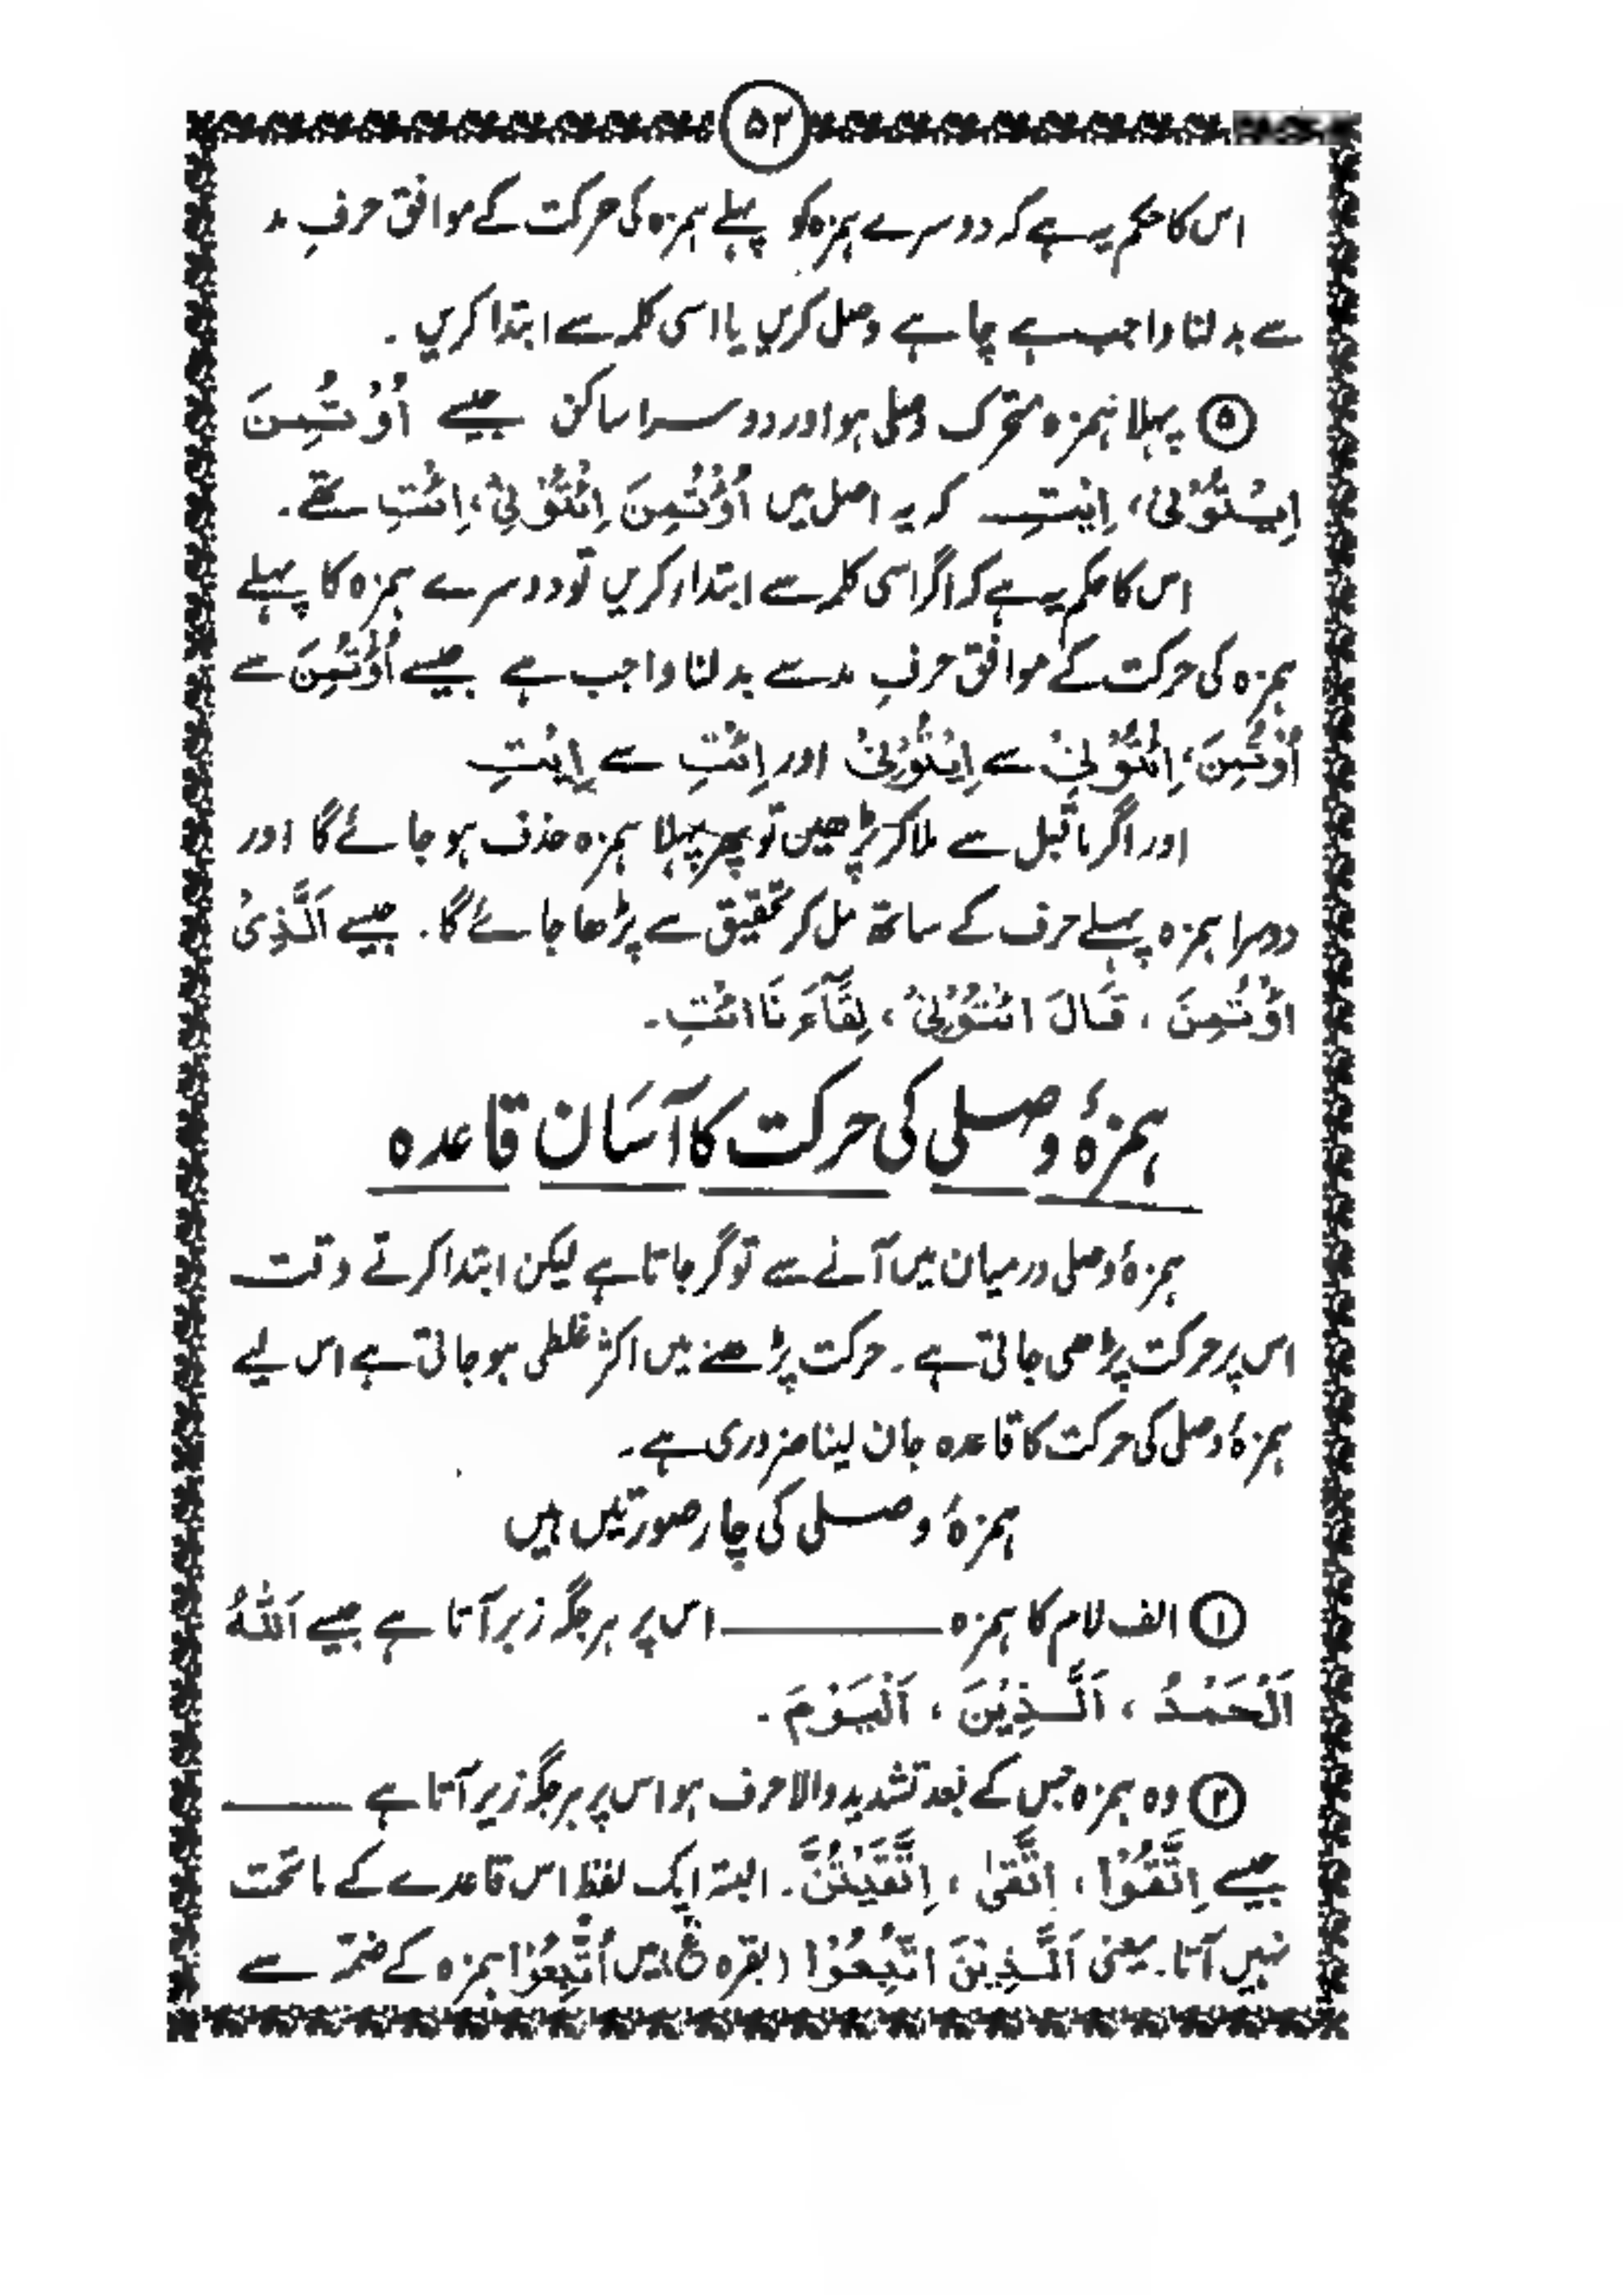 ۵۲
اس کا حکم یہ ہے کہ دوسرے ہمزہ کو پہلے ہمزہ کی حرکت کے موافق حرفِ مد
سے بدلنا واجب ہے چاہے وصل کریں یا اسی کلمہ سے ابتدا کریں ۔
۵ پہلا ہمزہ متحرک وصلی ہو اور دوسرا ساکن جیسے اُوْتُمِنَ
اِیْتُوْنِیْ، اِیْتِ کہ یہ اصل میں اُؤْتُمِنَ اِئْتُوْنِیْ، اِئْتِ تھے۔
اس کا حکم یہ ہے کہ اگر اسی کلمہ سے ابتداء کریں تو دوسرے ہمزہ کا پہلے
ہمزہ کی حرکت کے موافق حرفِ مد سے بدلنا واجب ہے جیسے اُؤْتُمِنَ سے
اُوْتُمِنَ، اِئْتُوْنِیْ سے اِیْتُوْنِیْ اور اِئْتِ سے اِیْتِ
اور اگر ماقبل سے ملا کر پڑھیں تو پھر پہلا ہمزہ حذف ہو جائے گا اور
دوسرا ہمزہ پہلے حرف کے ساتھ مل کر تحقیق سے پڑھا جائے گا۔ جیسے اَلَّذِیْ
اؤْتُمِنَ ، قَالَ ائْتُوْنِیْ ، لِقَآءَنَا ائْتِ۔
ہمزۂ وصلی کی حرکت کا آسَان قاعدہ
ہمزۂ وصلی درمیان میں آنے سے تو گر جاتا ہے لیکن ابتدا کرتے وقت
اس پر حرکت پڑھی جاتی ہے ۔ حرکت پڑھنے میں اکثر غلطی ہو جاتی ہے اس لیے
ہمزۂ وصلی کی حرکت کا قاعدہ جان لینا ضروری ہے ۔
ہمزۂ وصلی کی چار صورتیں ہیں
۱ الف لام کا ہمزہ ــــــــ اس پر ہر جگہ زبر آتا ہے جیسے اَللّٰهُ
اَلْحَمْدُ ، اَلَّذِیْنَ ، اَلْیَوْمَ ۔
۲ وہ ہمزہ جس کے بعد تشدید والا حرف ہو اس پر ہر جگہ زیر آتا ہے ــــــــ
جیسے اِتَّقُوْا ، اِتَّقٰی ، اِتَّقَیْتُنَّ ۔ البتہ ایک لفظ اس قاعدے کے ماتحت
نہیں آتا ۔ یعنی اَلَّذِیْنَ اتُّبِعُوْا (بقرہ میں اُتُّبِعُوْا ہمزہ کے ضمّہ سے